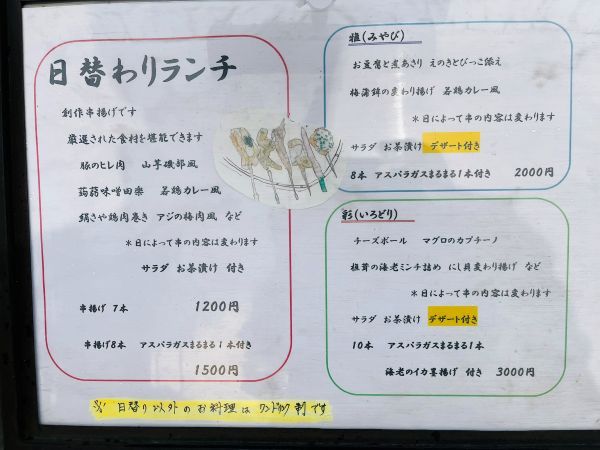 日替わりランチ
創作串揚げです
厳選された食材を堪能できます
豚のヒレ肉 山芋磯部風
蒟蒻味噌田楽 若鶏カレー風
絹さや鶏肉巻き アジの梅肉風 など
＊日によって串の内容は変わります
サラダ お茶漬け 付き
串揚げ 7本 1200円
串揚げ8本 アスパラガスまるまる1本付き
1500円
※ 日替り以外のお料理はワンドリンク制です
雅(みやび)
お豆腐と煮あさり えのきとびっこ添え
梅蒲鉾の変わり揚げ 若鶏カレー風
＊日によって串の内容は変わります
サラダ お茶漬け デザート付き
8本 アスパラガスまるまる1本付き 2000円
彩(いろどり)
チーズボール マグロのカプチーノ
椎茸の海老ミンチ詰め にし貝変わり揚げ など
＊日によって串の内容は変わります
サラダ お茶漬け デザート付き
10本 アスパラガスまるまる1本
海老のイカ蓑揚げ 付き 3000円